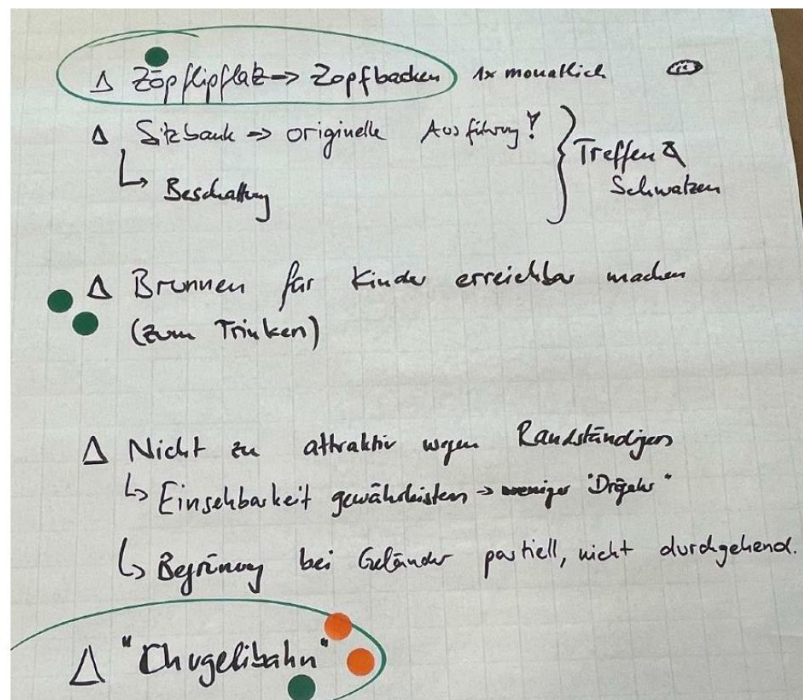 Δ Zöpfliplatz → Zopfbacken 1x monatlich
Δ Sitzbank → originelle Ausführung?
↳ Beschattung
Treffen &
Schwatzen
Δ Brunnen für Kinder erreichbar machen
(zum Trinken)
Δ Nicht zu attraktiv wegen Randständigen
↳ Einsehbarkeit gewährleisten → weniger "Drögeler"
↳ Begrünung bei Geländer partiell, nicht durchgehend.
Δ "Chugelibahn"